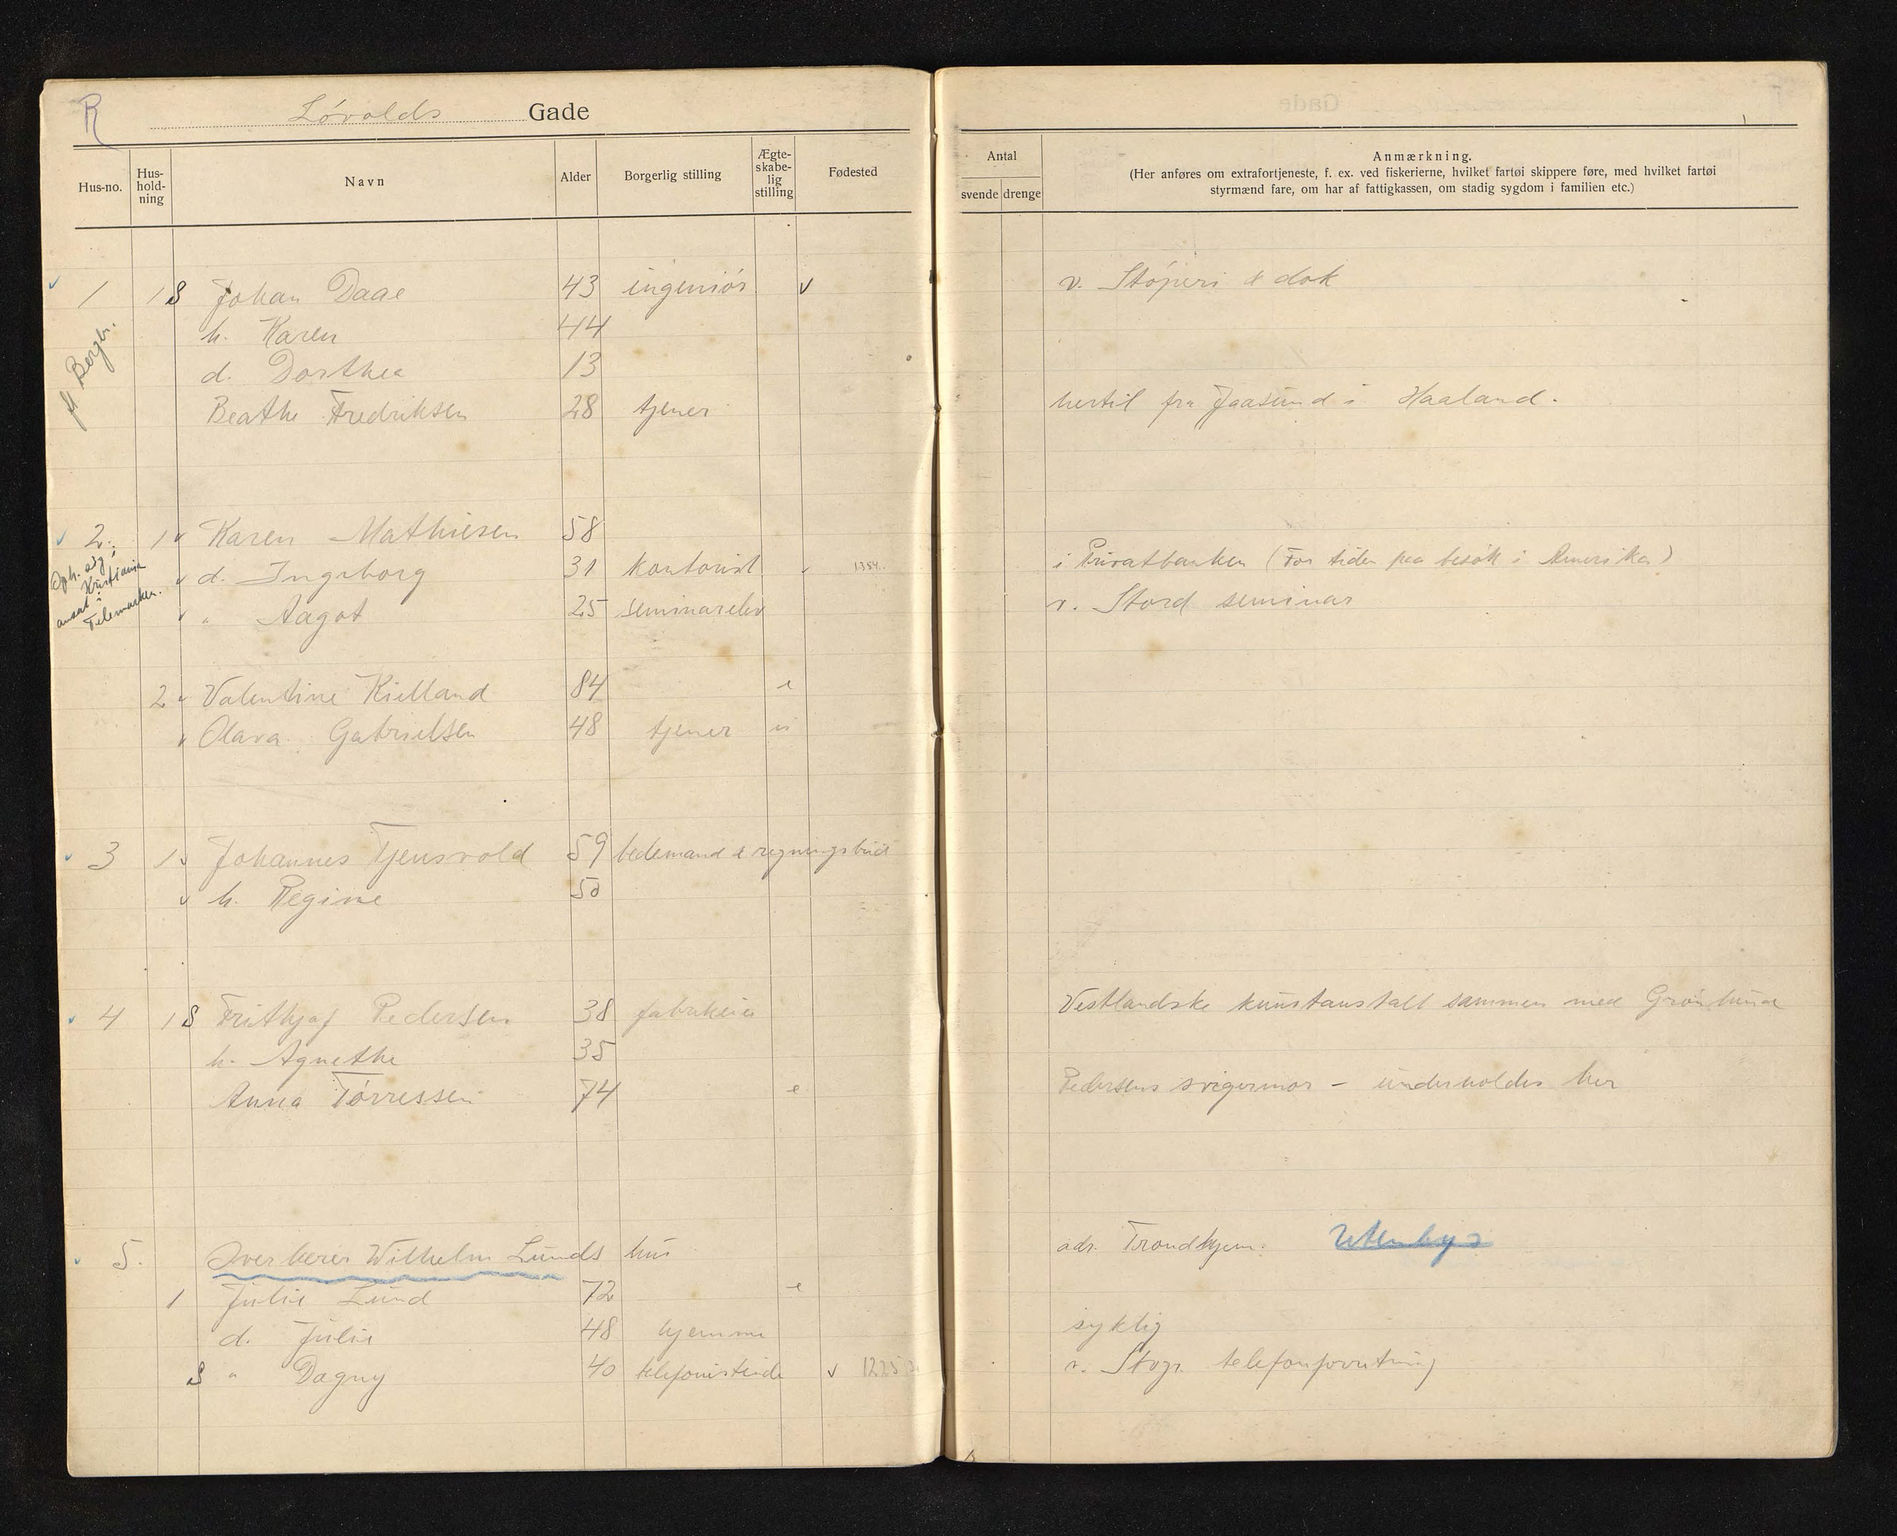 R Løvolds Gade
Hus-no. Hus-hold-ning Navn Alder Borgerlig stilling Ægte-skabe-lig stilling Fødested
Antal svende drenge
Anmærkning.
(Her anføres om extrafortjeneste, f. ex. ved fiskerierne, hvilket fartøi skippere føre, med hvilket fartøi
styrmænd fare, om har af fattigkassen, om stadig sygdom i familien etc.)
1 1 S Johan Daae 43 ingeniør v v. Støperi & dok
h. Karen 44
fl Bergen.
d. Dorthea 13
Beathe Fredriksen 28 tjener hertil fra Jaasund i Haaland.
2. 1 v Karen Mathiesen 58
v d. Ingeborg 31 kontorist 1384. i Privatbanken (For tiden paa besøk i Amerika)
Kristiania
ansat i
Telemarken.
v " Aagot 25 seminarelev v. Stord seminar
2 v Valentine Kielland 84 e
v Olava Gabrielsen 48 tjener u
3 1 v Johannes Tjensvold 59 bedemand & regningsbud
v h. Regine 50
4 1 S Frithjof Pedersen 38 fabrikeier Vestlandske kunstanstalt sammen med Grønlund
h. Agnethe 35
Anna Tørressen 74 e Pedersens svigermor – underholdes her
5. Overlærer Wilhelm Lunds hus adr. Trondhjem. Utenbys
1 Julie Lund 72 e
d. Julie 48 hjemme syklig
S " Dagny 40 telefonistinde v 1225 v. Stvgr telefonforretning